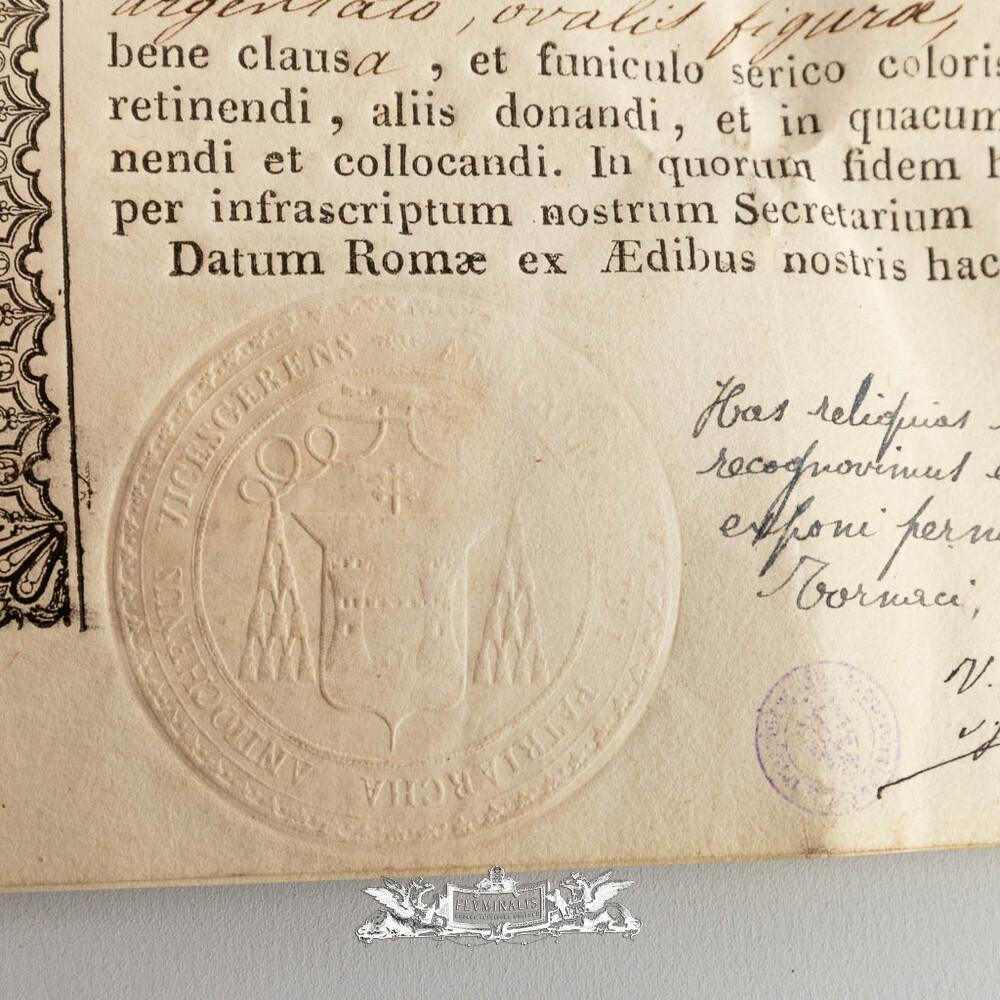 argentato, ovalis figuræ,
bene clausa, et funiculo serico coloris
retinendi, aliis donandi, et in quacum
nendi et collocandi. In quorum fidem h
per infrascriptum nostrum Secretarium
Datum Romæ ex Ædibus nostris hac
Has reliquias
recognovimus e
exponi perm
Tornaci,
V.
PATRIARCHA ANTIOCHENVS VICESGERENS
FLVMINALIS